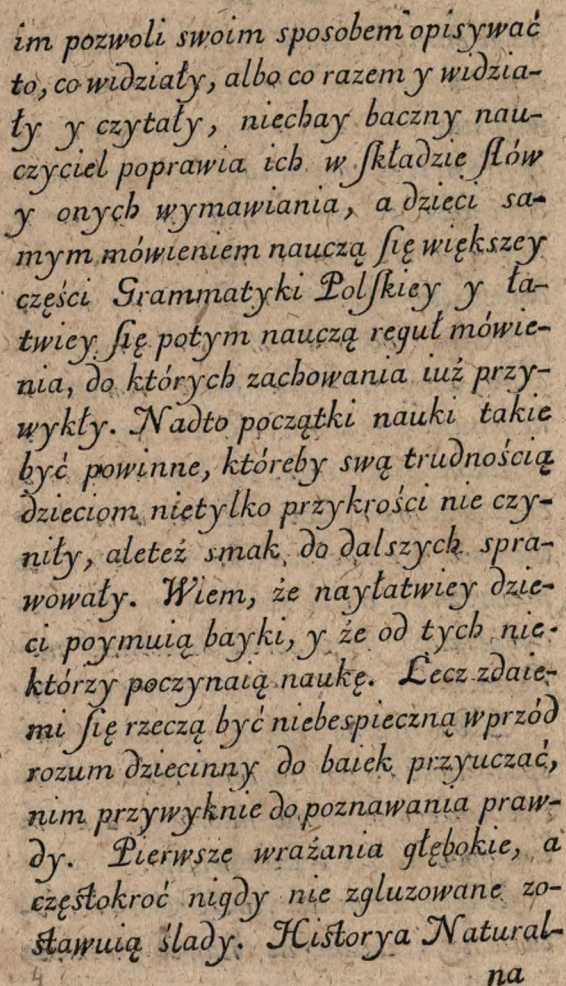 im pozwoli swoim sposobem opisywać
to, co widziały, albo co razem y widzia-
ły y czytały, niechay baczny nau-
czyciel poprawia ich w ſkładzie ſłów
y onych wymawiania, a dzieci sa-
mym mówieniem nauczą ſię większey
części Grammatyki Polſkiey y ła-
twiey ſię potym nauczą reguł mówie-
nia, do których zachowania iuż przy-
wykły. Nadto początki nauki takie
być powinne, któreby swą trudnością
dzieciom nietylko przykrości nie czy-
niły, aleteż smak do dalszych spra-
wowały. Wiem, że nayłatwiey dzie-
ci poymuią bayki, y że od tych nie-
którzy poczynaią naukę. Lecz zdaie-
mi ſię rzeczą być niebespieczną wprzód
rozum dziecinny do baiek przyuczać,
nim przywyknie do poznawania praw-
dy. Pierwsze wrażania głębokie, a
częſtokroć nigdy nie zgluzowane zo-
ſtawuią ślady. Hiſtorya Natural-
na